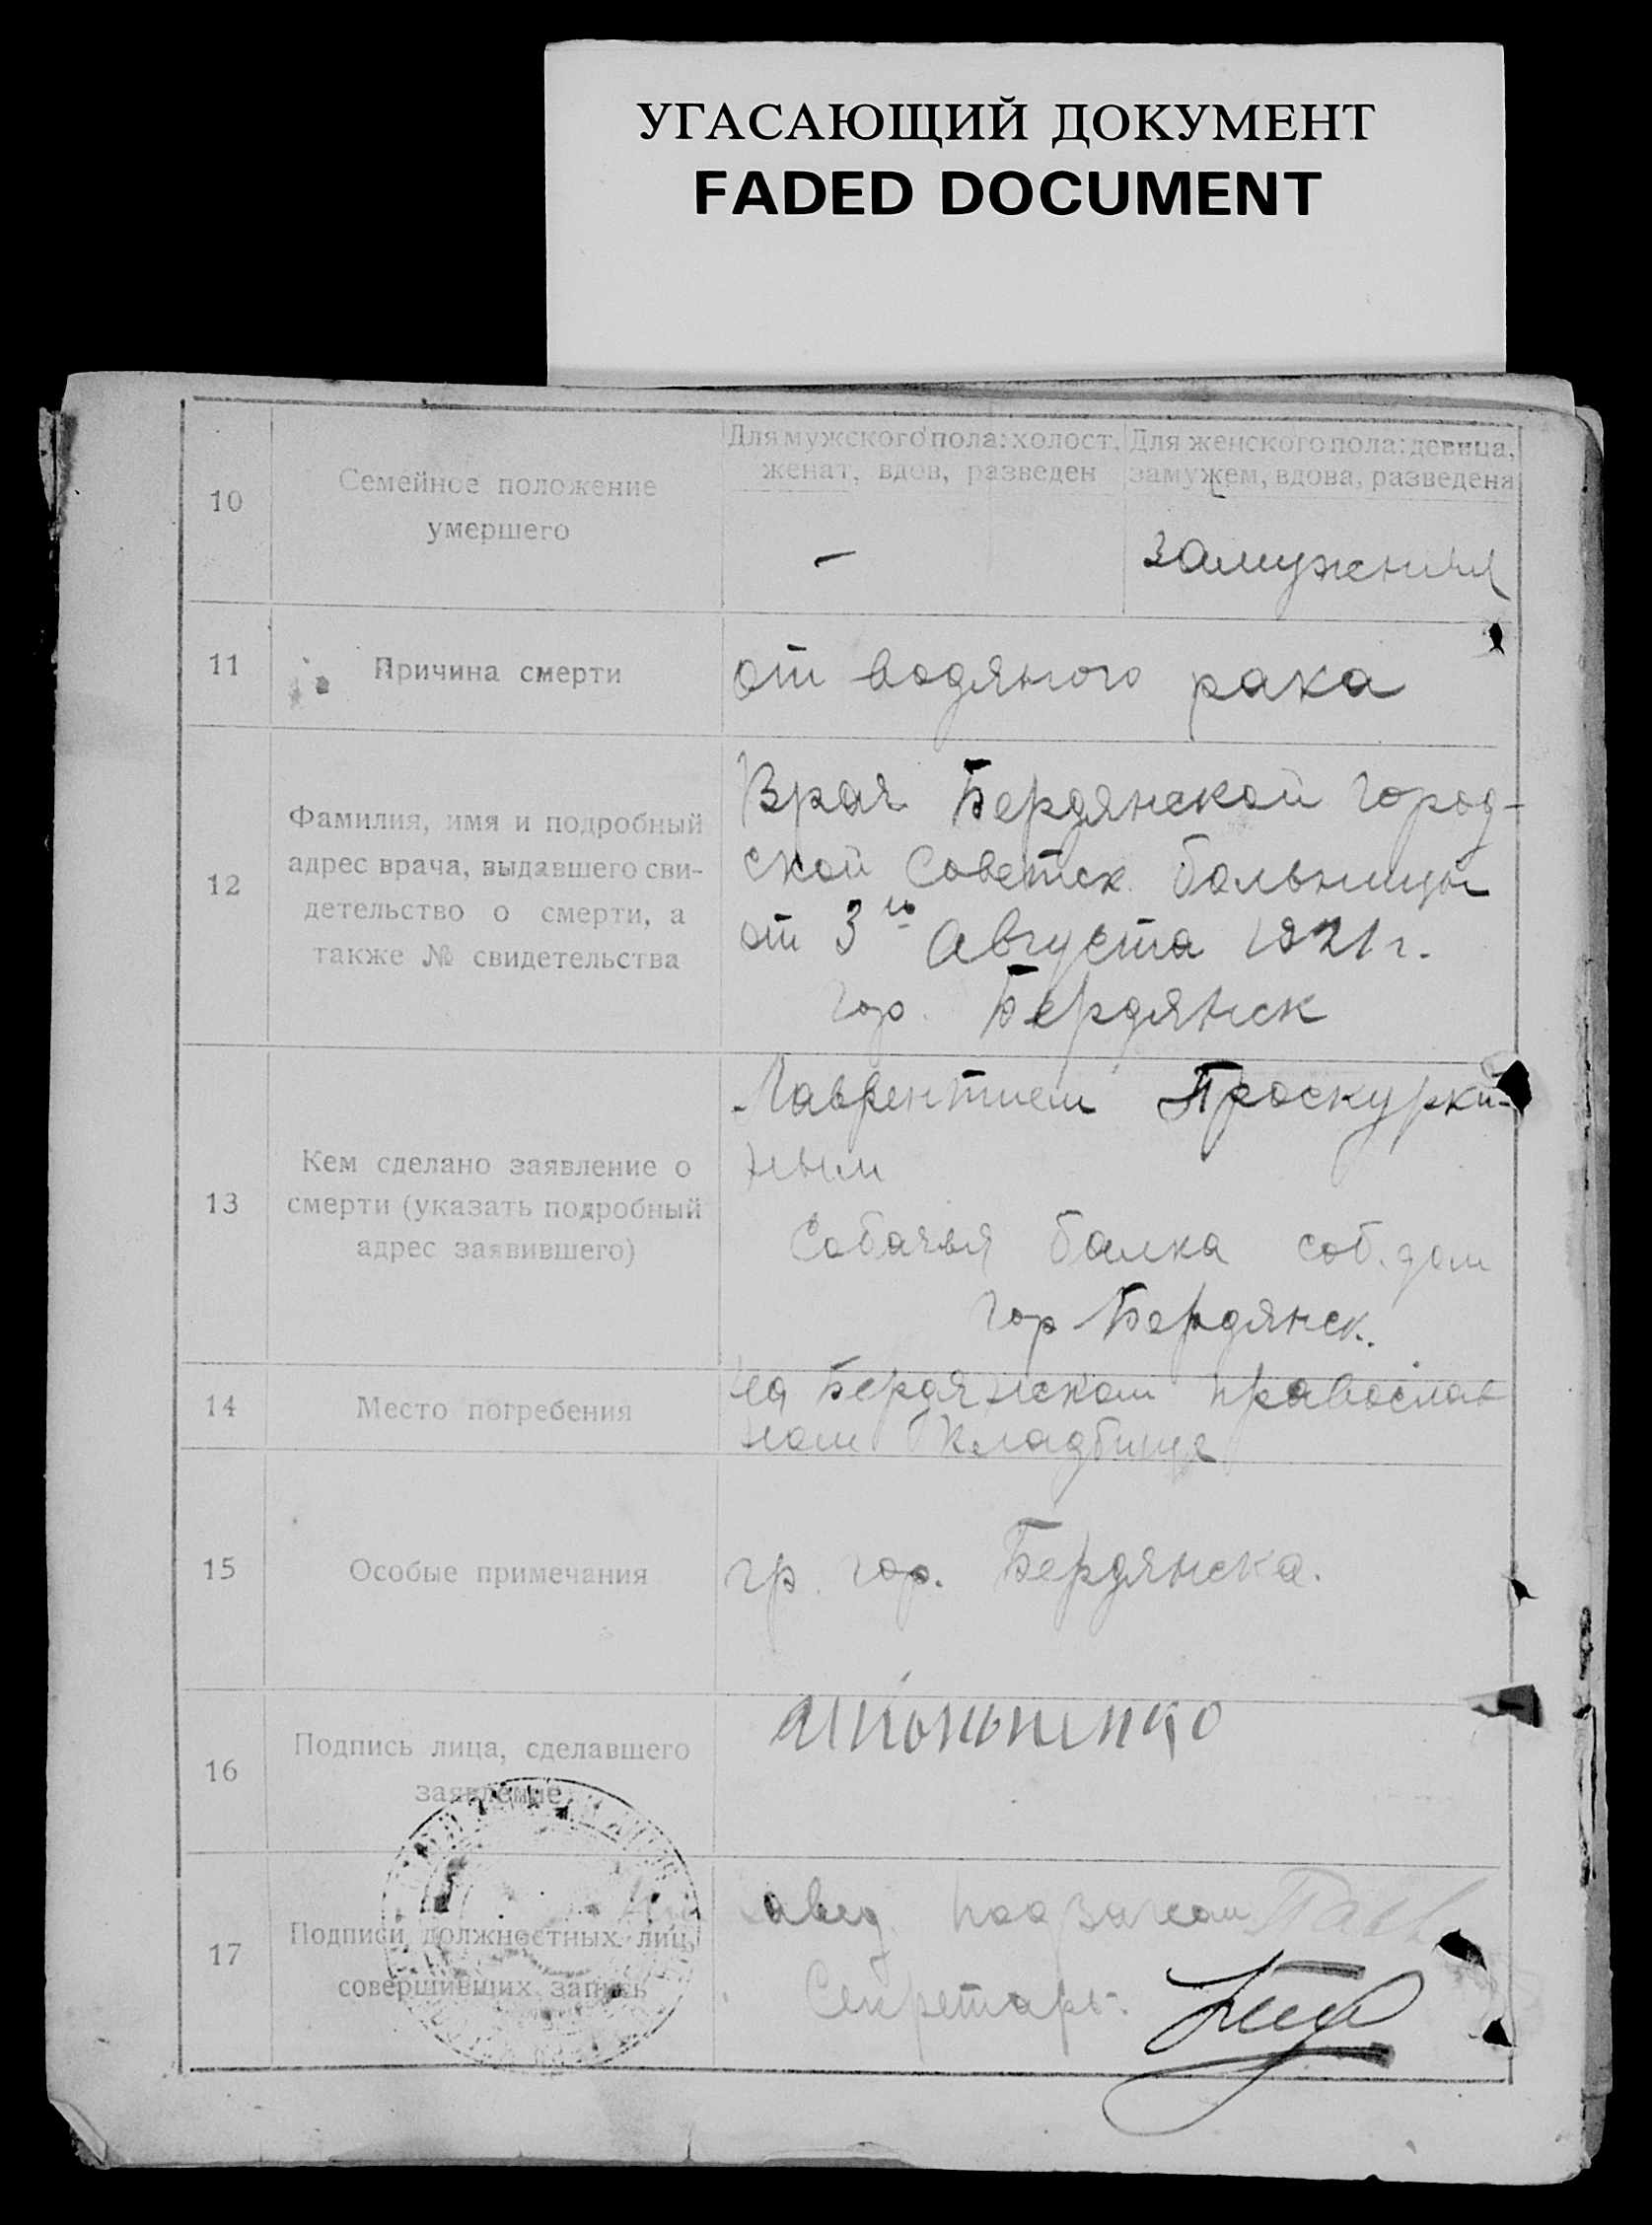 УГАСАЮЩИЙ ДОКУМЕНТ
FADED DOCUMENT
10
Семейное положение
умершего
Для мужского пола: холост,
женат, вдов, разведен
Для женского пола: девица,
замужем, вдова, разведена
–
замужняя
11
Причина смерти
от водяного рака
12
Фамилия, имя и подробный
адрес врача, выдавшего сви-
детельство о смерти, а
также № свидетельства
Врач Бердянской город-
ской Советск. больницы
от 3го Августа 1921 г.
гор. Бердянск
13
Кем сделано заявление о
смерти (указать подробный
адрес заявившего)
Лаврентием Проскурки-
ным
Собачья балка соб. дом
гор Бердянск.
14
Место погребения
на Бердянском православ
ном кладбище
15
Особые примечания
гр. гор. Бердянска.
16
Подпись лица, сделавшего
заявление
17
Подписи должностных лиц,
совершивших запись
Завед.
Секретарь: